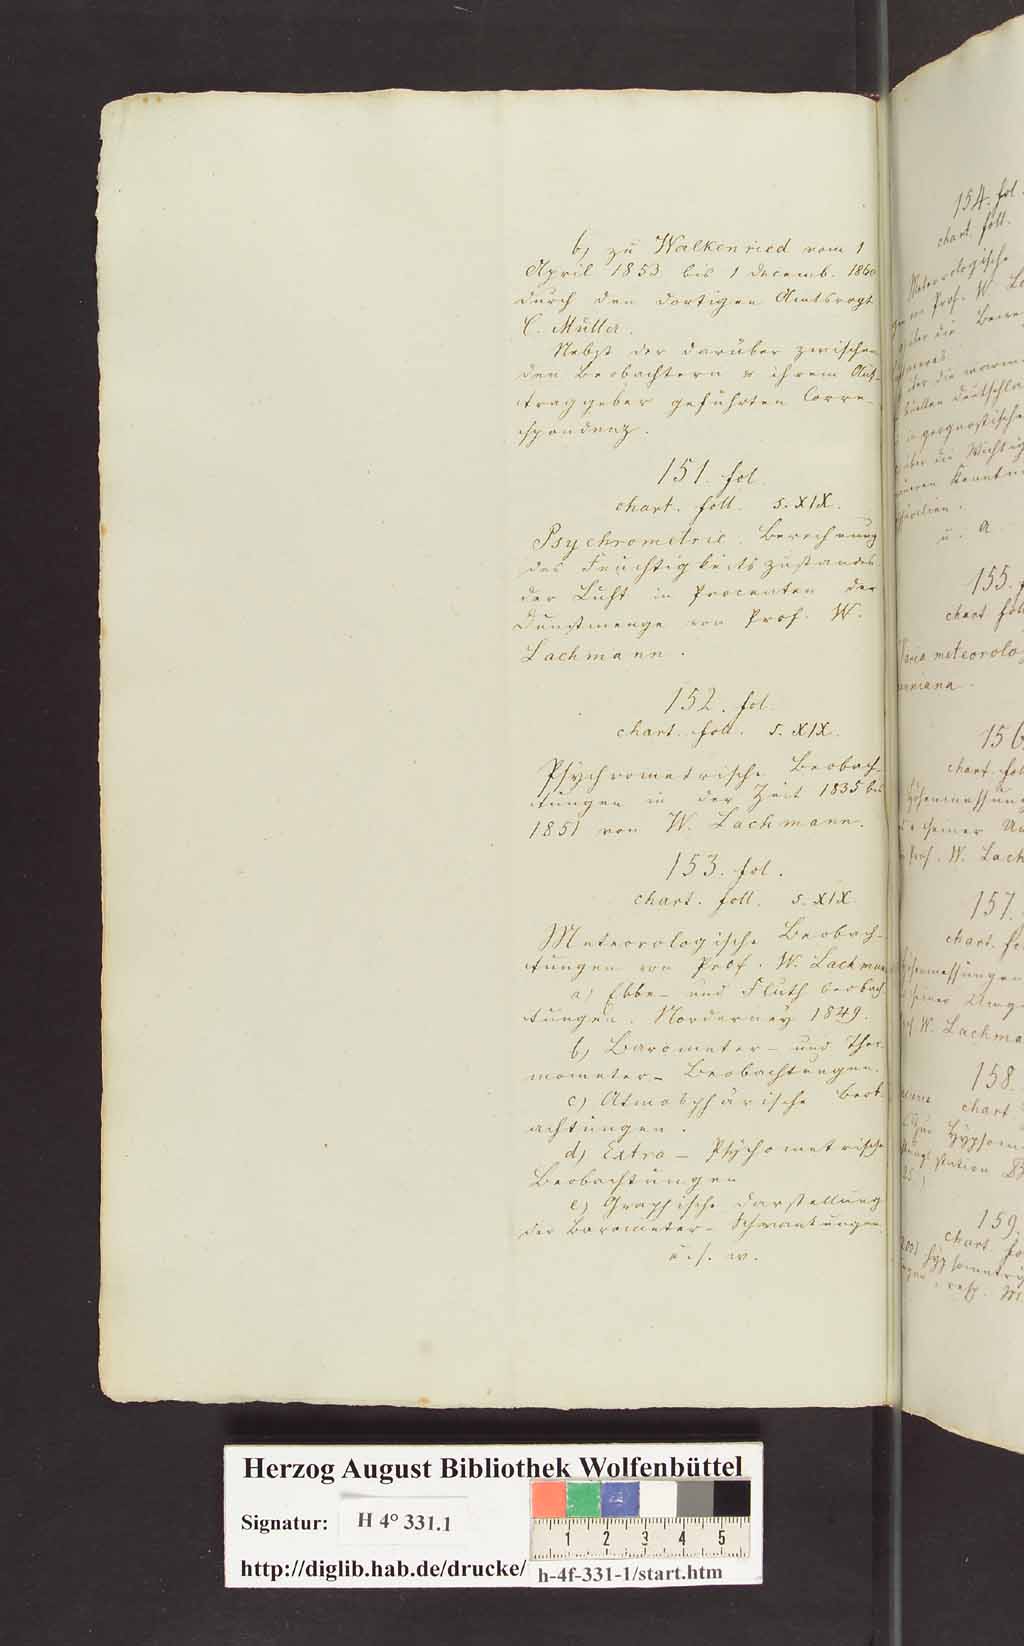 b) zu Walkenried vom 1
April 1853 bis 1 Decemb. 1860
durch den dortigen Amtsvogt
C. Müller.
Nebst der darüber zwischen
den Beobachtern u ihrem Auf-
traggeber geführten Corre-
spondenz.
151. fol.
chart. foll. s. XIX.
Psychrometrie. Berechnung
des Feuchtigkeitszustandes
der Luft in Procenten der
Dunstmenge von Prof. W.
Lachmann.
152. fol.
chart. foll. s. XIX.
Psychrometrische Beobach-
tungen in der Zeit 1835 bis
1851 von W. Lachmann.
153. fol.
chart. foll. s. XIX.
Meteorologische Beobach-
tungen von Prof. W. Lachmann
a) Ebbe- und Fluth beobach-
tungen. Norderney 1849.
b) Barometer- und Ther-
mometer- Beobachtungen.
c) Atmosphärische Beob-
achtungen.
d) Extra- Psychometrische
Beobachtungen
e) Graphische Darstellung
der Barometer- Schwankungen
u. s. w.
154. fol.
chart. foll.
Meteorologische
Prof. W.
über die
über die
Quellen Deutschla
geognostische
über die Wichtig
u. A.
155.
chart. fol
Varia meteorolo
156
chart. fol
Höhenmessung
seiner
Prof. W. Lach
157.
chart. fo
seiner Umge
W. Lachma
158.
chart
Station
159.
chart. fo
Hypsometri
Herzog August Bibliothek Wolfenbüttel
Signatur: H 4° 331.1
1 2 3 4 5
http://diglib.hab.de/drucke/ h-4f-331-1/start.htm